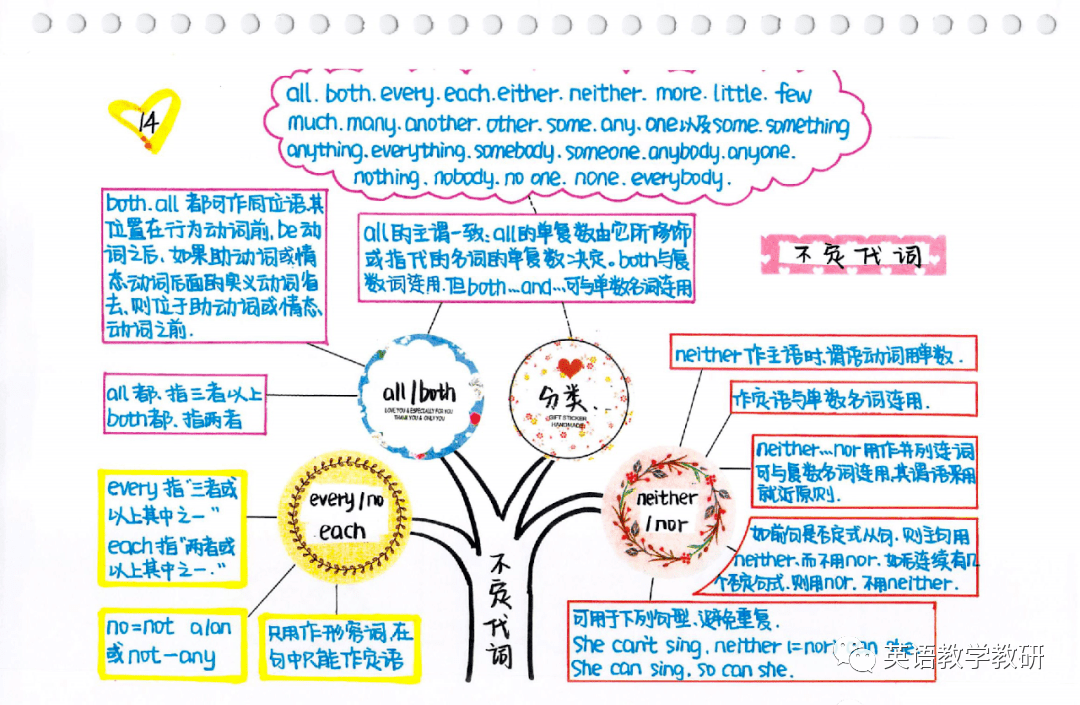 14
all. both. every. each. either. neither. more. little. few
much. many. another. other. some. any. one以及some. something
anything. everything. somebody. someone. anybody. anyone.
nothing. nobody. no one. none. everybody.
不定代词
both. all 都可作同位语,其
位置在行为动词前, be动
词之后, 如果助动词或情
态动词后面的实义动词省
去, 则位于助动词或情态
动词之前.
all的主谓一致: all的单复数由它所修饰
或指代的名词的单复数决定。both与复
数词连用. 但both...and...可与单数名词连用
all 都、指三者以上
both都、指两者
all/both
LOVE YOU & ESPECIALLY FOR YOU
THANK YOU & ONLY YOU
分类.
GIFT STICKER
HANDMADE
neither 作主语时, 谓语动词用单数.
作定语与单数名词连用.
neither...nor 用作并列连词
可与复数名词连用, 其谓语采用
就近原则.
如前句是否定式从句. 则主句用
neither, 而不用nor. 如后连续有几
个否定句式. 则用nor. 不用neither.
可用于下列句型、避免重复.
She can't sing, neither (=nor) can she.
She can sing, so can she.
neither
/nor
every/no
each
every 指“三者或
以上其中之一”
each 指“两者或
以上其中之一.”
no=not a/an
或 not—any
只用作形容词, 在
句中只能作定语
不定代词
英语教学教研